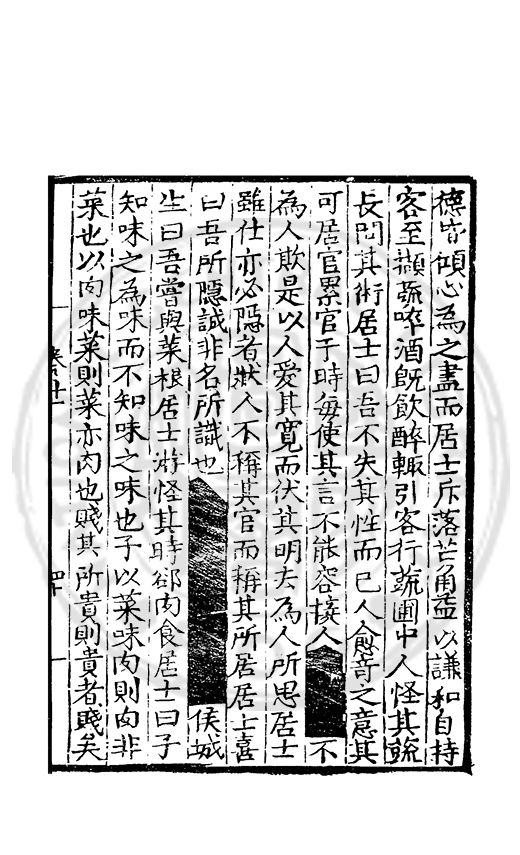 德皆傾心為之盡而居士斥落芒角益以謙和自持
客至擷蔬啐酒旣飲醉輒引客行蔬圃中人怪其蔬
長問其術居士曰吾不失其性而已人愈竒之意其
可居官累官于時每使其言不能容接人 不
為人欺是以人愛其寬而伏其明去為人所思居士
雖仕亦必隱者狀人不稱其官而稱其所居居士喜
曰吾所隱誠非名所識也 侯城
生曰吾嘗與菜根居士游怪其時卻肉食居士曰子
知味之為味而不知味之味也子以菜味肉則肉非
菜也以肉味菜則菜亦肉也賤其所貴則貴者賤矣
卷廿一